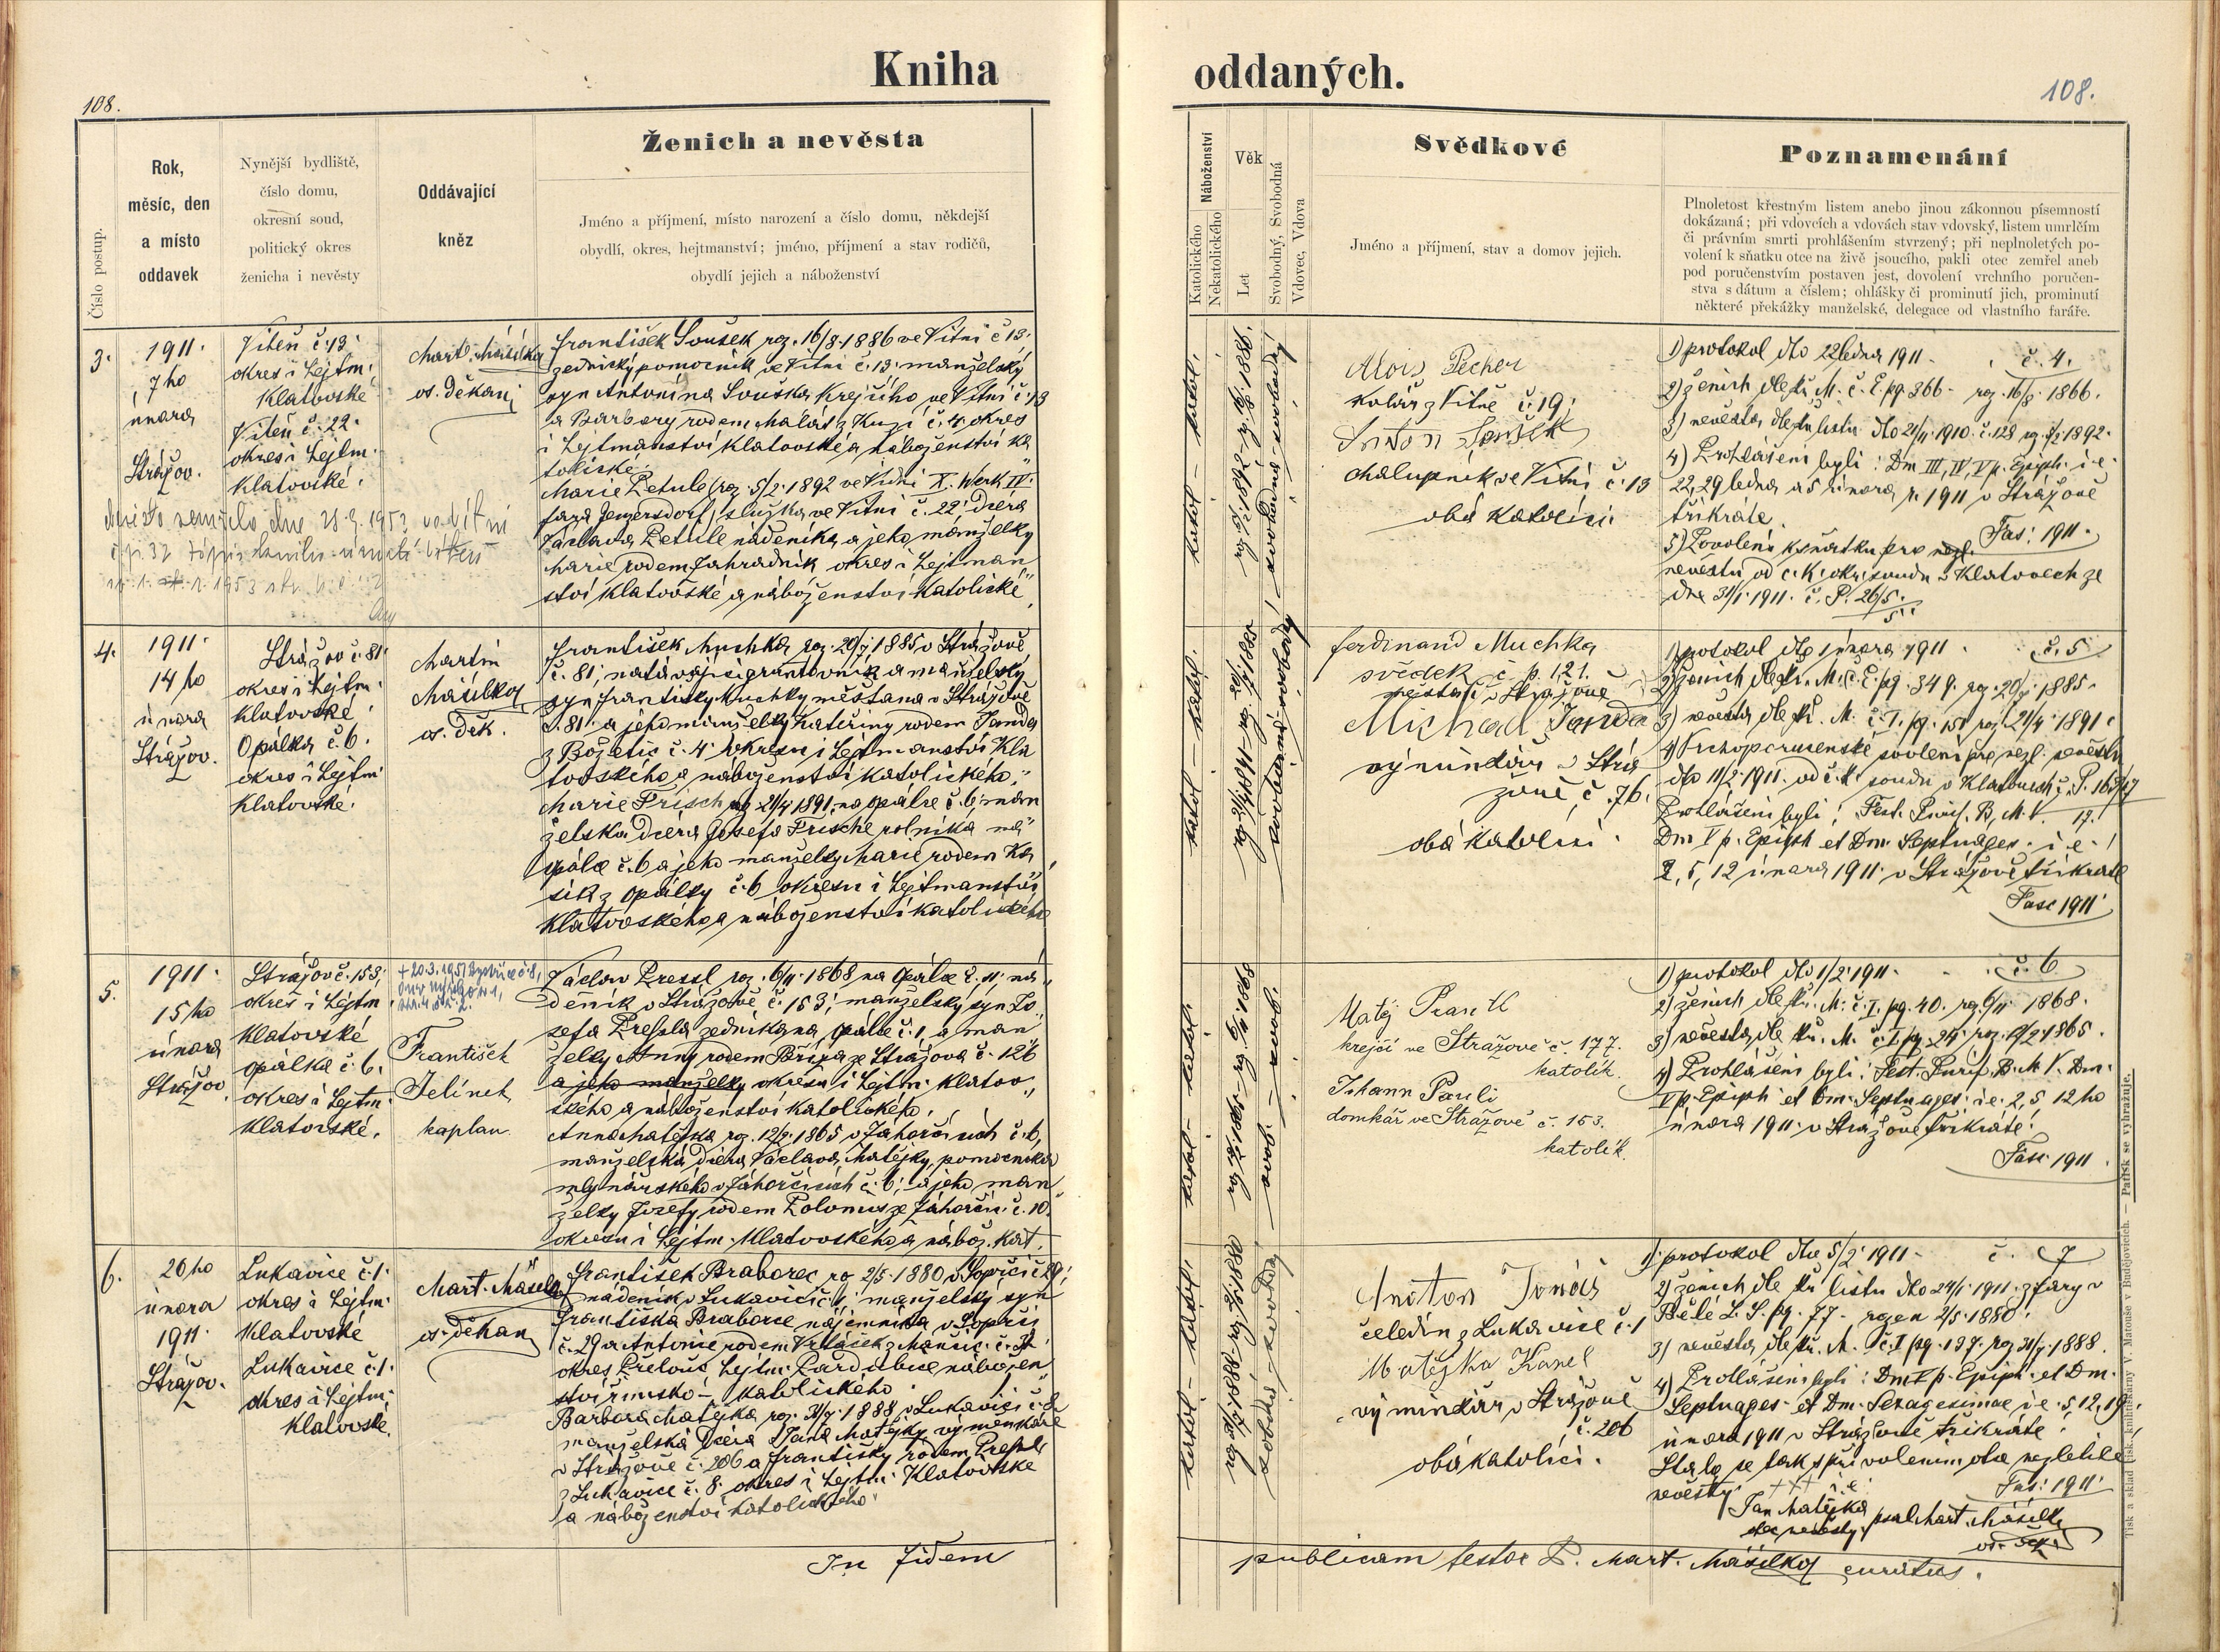 Kniha
oddaných.
108.
108.
Číslo postup.
Rok,
měsíc, den
a místo
oddavek
Nynější bydliště,
číslo domu,
okresní soud,
politický okres
ženicha i nevěsty
Oddávající
kněz
Ženich a nevěsta
Jméno a příjmení, místo narození a číslo domu, někdejší
obydlí, okres, hejtmanství; jméno, příjmení a stav rodičů,
obydlí jejich a náboženství
Náboženství
Katolického
Nekatolického
Věk
Let
Svobodný, Svobodná
Vdovec, Vdova
Svědkové
Jméno a příjmení, stav a domov jejich.
Poznamenání
Plnoletost křestným listem anebo jinou zákonnou písemností
dokázaná; při vdovcích a vdovách stav vdovský, listem umrlčím
či právním smrti prohlášením stvrzený; při neplnoletých po-
volení k sňatku otce na živě jsoucího, pakli otec zemřel aneb
pod poručenstvím postaven jest, dovolení vrchního poručen-
stva s dátum a číslem; ohlášky či prominutí jich, prominutí
některé překážky manželské, delegace od vlastního faráře.
3.
1911.
7ho
února
Strážov.
Viteň č. 13.
okres i hejtm.
Klatovské
Viteň č. 22.
okres i hejtm.
Klatovské.
Mart. Mášilka
os. děkan
František Soušek roz. 16/8 1886 ve Vitni č 13.
zednický pomocník ve Vitni č. 13. manželský
syn Antonína Souška krejčího ve Vitni č. 13
a Barbory rodem Malát z č. 4. okres
i hejtmanství Klatovské a náboženství ka
tolické.
Marie Petule (roz. 5/2. 1892 ve Vídni X. Werk IV.
fara Jenzersdorf) služka ve Vitni č. 22. dcera
Václava Petule nádeníka a jeho manželky
Marie rodem Zahradník okres i hejtman
ství Klatovské a náboženství Katolické
katol. – katol.
svobodná – svobodný
Alois Pecher
kolář z Vitně č. 19;
Anton Soušek
chalupník ve Vitni č. 13
oba katolíci.
1) protokol dto 22 ledna 1911. č. 4.
2) ženich dle kř. M. č. E pg. 366 - roz. 16/8. 1866.
3) nevěsta dle kř. listu dto 1910. č. 128 1892.
4) Prohlášeni byli: Dm. III, IV, V p. Epiph. i. e.
22, 29 ledna a 5 února r. 1911 v Strážově
třikráte.
Fas. 1911.
5) Povolení k sňatku pro nezl.
nevěstu od c. k. okr. soudu v Klatovech ze
dne 31/1. 1911. č. P. 26/5.
4.
1911.
14ho
února
Strážov.
Strážov č. 81.
okres i hejtm.
Klatovské.
Opálka č. 6.
okres i hejtm.
Klatovské.
Martin
Mášilka
os. děk.
František Muchka roz. 1885 v Strážově
č. 81; nastávající gruntovník a manželský
syn Františka Muchky měšťana v Strážově
č. 81. a jeho manželky Kateřiny rodem Janda
z Božetic č. 4. okresu i hejtmanství Kla
tovského a náboženství katolického.
Marie Frisch roz. 21/4 1891 na Opálce č. 6; man
želská dcera Josefa Frische rolníka na
Opálce č. 6 a jeho manželky Marie rodem Ka
sík z Opálky č. 6 okresu i hejtmanství
Klatovského a náboženství katolického
katol. – katol.
svobodná svobodný
Ferdinand Muchka
svědek č. p. 121.
měšťan v Strážově
Michael Janda
výminkář v Strá
žově č. 76.
oba katolíci.
1) protokol dto 1 února 1911. č. 5
2) ženich dle kř. M. č. E pg. 349. roz. 1885.
3) nevěsta dle kř. M. č. I. pg. roz. 21/4. 1891.
4) Vrchoporučenské svolení pro nezl. nevěstu
dto 11/2. 1911. od č. k. soudu v Klatovech č. P.
Prohlášeni byli: Fest. Purif. B. M. V.
Dm V p. Epiph et Dm. Septuages. i. e.
2, 5, 12 února 1911. v Strážově třikráte
Fasc 1911.
5.
1911.
15ho
února
Strážov.
Strážov č. 153;
okres i hejtm
Klatovské
Opálka č. 6.
okres i hejtm.
Klatovské.
František
Jelínek
kaplan
Václav Pressl roz. 6/11. 1868 na Opálce č. 11; ná
deník v Strážově č. 153; manželský syn Jo
sefa Pressla zedníka na Opálce č. 1, a man
želky Anny rodem Bříza ze Strážova č. 126
a jeho manželky okresu i hejtm. Klatov
ského a náboženství katolického.
Anna Matějka roz. 1865 v Záhorčicích č. 6,
manželská dcera Václava Matějky, pomocníka
mlynářského v Záhorčicích č. 6; a jeho man
želky Josefy rodem Polonus ze Záhorčic č. 10.
okresu i hejtm. Klatovského a nábož. kat.
katol. – katol.
svob. – svob.
Matěj Prantl
krejčí ve Strážově č. 177.
katolík.
Johann Pauli
domkář ve Strážově č. 153.
katolík.
1) protokol dto 1/2. 1911. č. 6
2) ženich dle kř. M. č. I. pg. 40. roz. 6/11. 1868.
3) nevěsta dle kř. M. č. I pg. 24. roz. 1865.
4) Prohlášeni byli: Fest. Purif. B. M. V. Dm.
V p. Epiph et Dm. Septuages. i. e. 2, 5, 12 ho
února 1911. v Strážově třikráte.
Fasc 1911.
6.
20ho
února
1911.
Strážov.
Lukavice č. 1.
okres i hejtm.
Klatovské
Lukavice č. 1.
okres i hejtm.
Klatovské,
Mart. Mášilka
os. děkan
František Braborec roz. 2/5. 1880 v Sopřči č. 29;
nádeník v Lukavici č. 1; manželský syn
Františka Braborce nájemníka v Sopřči
č. 29 a Antonie rodem
okres Přelouč hejtm. Pardubice nábožen
ství římsko – katolického
Barbora Matějka roz. 1888 v Lukavici č. 8.
manželská dcera Jana Matějky, výměnkáře
v Strážově č. 206 a Františky rodem Pressl
z Lukavice č. 8. okres i hejtm. Klatovské
a náboženství katolického.
katol. – katol.
Anoton Tomáš
čeledín z Lukavice č. 1
Matějka Karel
výminkář v Strážově
č. 206
oba katolíci.
1) protokol dto 5/2. 1911. č. 7
2) ženich dle kř. listu dto 24/1. 1911. z fary v
Bělé L. S. pg. 77. rozen 2/5. 1880.
3) nevěsta dle kř. M. č. I pg. 137. roz. 1888.
4) Prohlášeni byli: Dm V p. Epiph. et Dm.
Septuages. et Dm. Sexagesimae i. e. 5, 12, 19.
února 1911 v Strážově třikráte.
Stalo se tak s přivolením otce nezletilé
nevěsty. +++ i. e.
Fas. 1911.
Jan Matějka psal Mart. Mášilka
otec nevěsty. os. děk.
In fidem
publicam testor P. Mart. Mášilka curatus.
Tisk a sklad knihtiskárny V. Matouše v Budějovicích. — Patisk se vyhražuje.